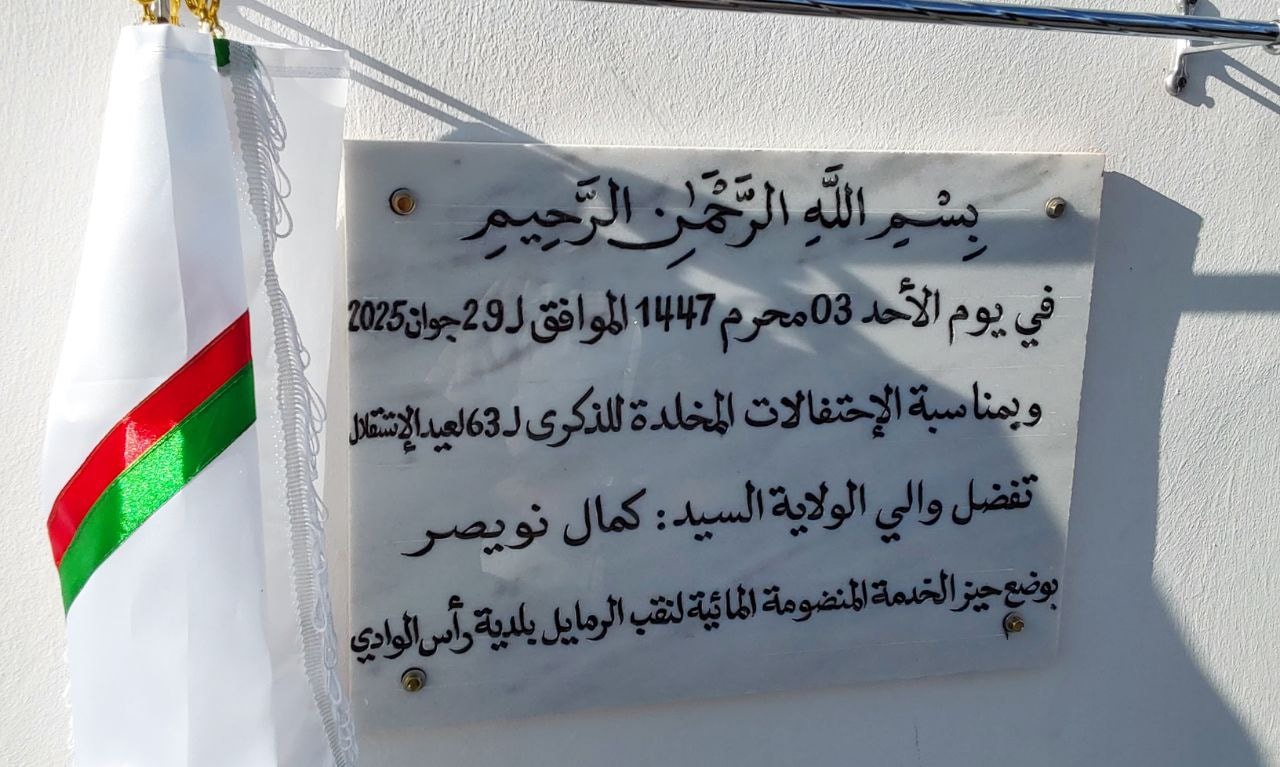 بِسْمِ اللَّهِ الرَّحْمَٰنِ الرَّحِيمِ
في يوم الأحد 03 محرم 1447 الموافق لـ 29 جوان 2025
وبمناسبة الإحتفالات المخلدة للذكرى لـ 63 لعيد الإستقلال
تفضل والي الولاية السيد : كمال نويصر
بوضع حيز الخدمة المنضومة المائية لنقب الرمايل بلدية رأس الوادي